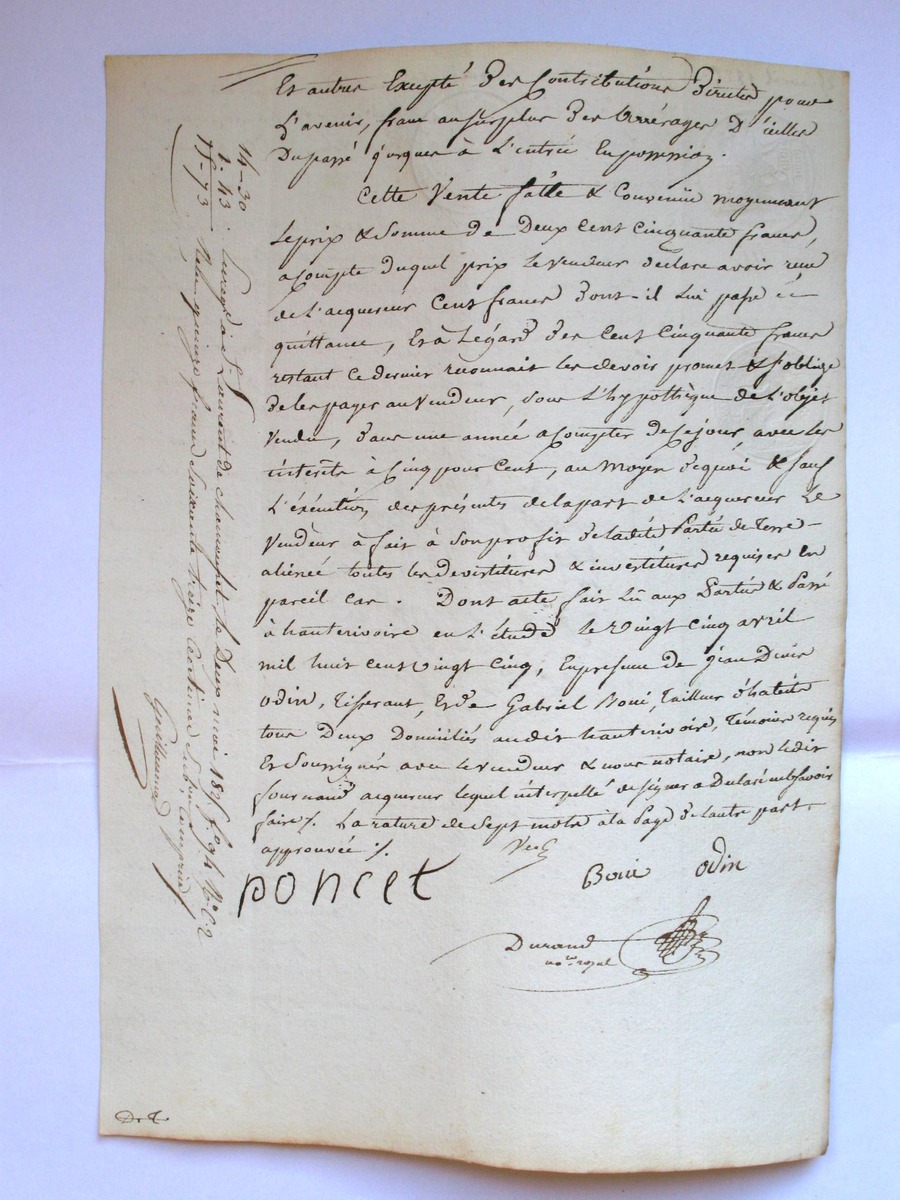 Et autres Excepté des Contributions directes pour
L'avenir, franc au surplus des arrérages D'icelles
Du passé jusques à L'entrée En possession.
Cette Vente faite & Convenüe moyennant
Le prix & Somme de Deux Cent Cinquante francs,
acompte duquel prix le Vendeur declare avoir reçu
de L'acquereur Cent francs dont-il lui passe
quittance, Et à Légard des Cent Cinquante francs
restant Ce dernier reconnait les devoir promet & s'oblige
de les payer au Vendeur, sous L'hypothèque de L'objet
Vendu, dans une année acompter de ce jour, avec les
interêts à Cinq pour Cent, au moyen de quoi & sauf
L'éxécution des présentes de la part de L'acquereur Le
Vendeur à fait à Son profit de ladite Partie de Terre -
alienée toutes les Devestitures & investitures requises en
pareil Cas. Dont acte fait Lû aux Parties & Passé
à hauterivoire en L'étude le Vingt Cinq avril
mil huit Cent Vingt Cinq, En presence de jean Denis
Odin, Tisserant, Et de Gabriel Boui, Tailleur d'habits
tous Deux Domiciliés audit hauterivoire, Témoins requis
Et Soussignés avec le Vendeur & nous notaire, non ledit
acquereur lequel interpellé de signer a Declaré ne Savoir
faire ⁒. La rature de Sept mots à la Page de l'autre part
approuvée ⁒.
poncet
Boui Odin
Durand
no.re royal
14-30
1-43
15-73
Enregé à St Laurent de chamousset le Deux mai 1825 f.o 94 R.o C. 2
Reçu quinze francs Soixante treize Centimes Sub.on Comprise
Guillaumet